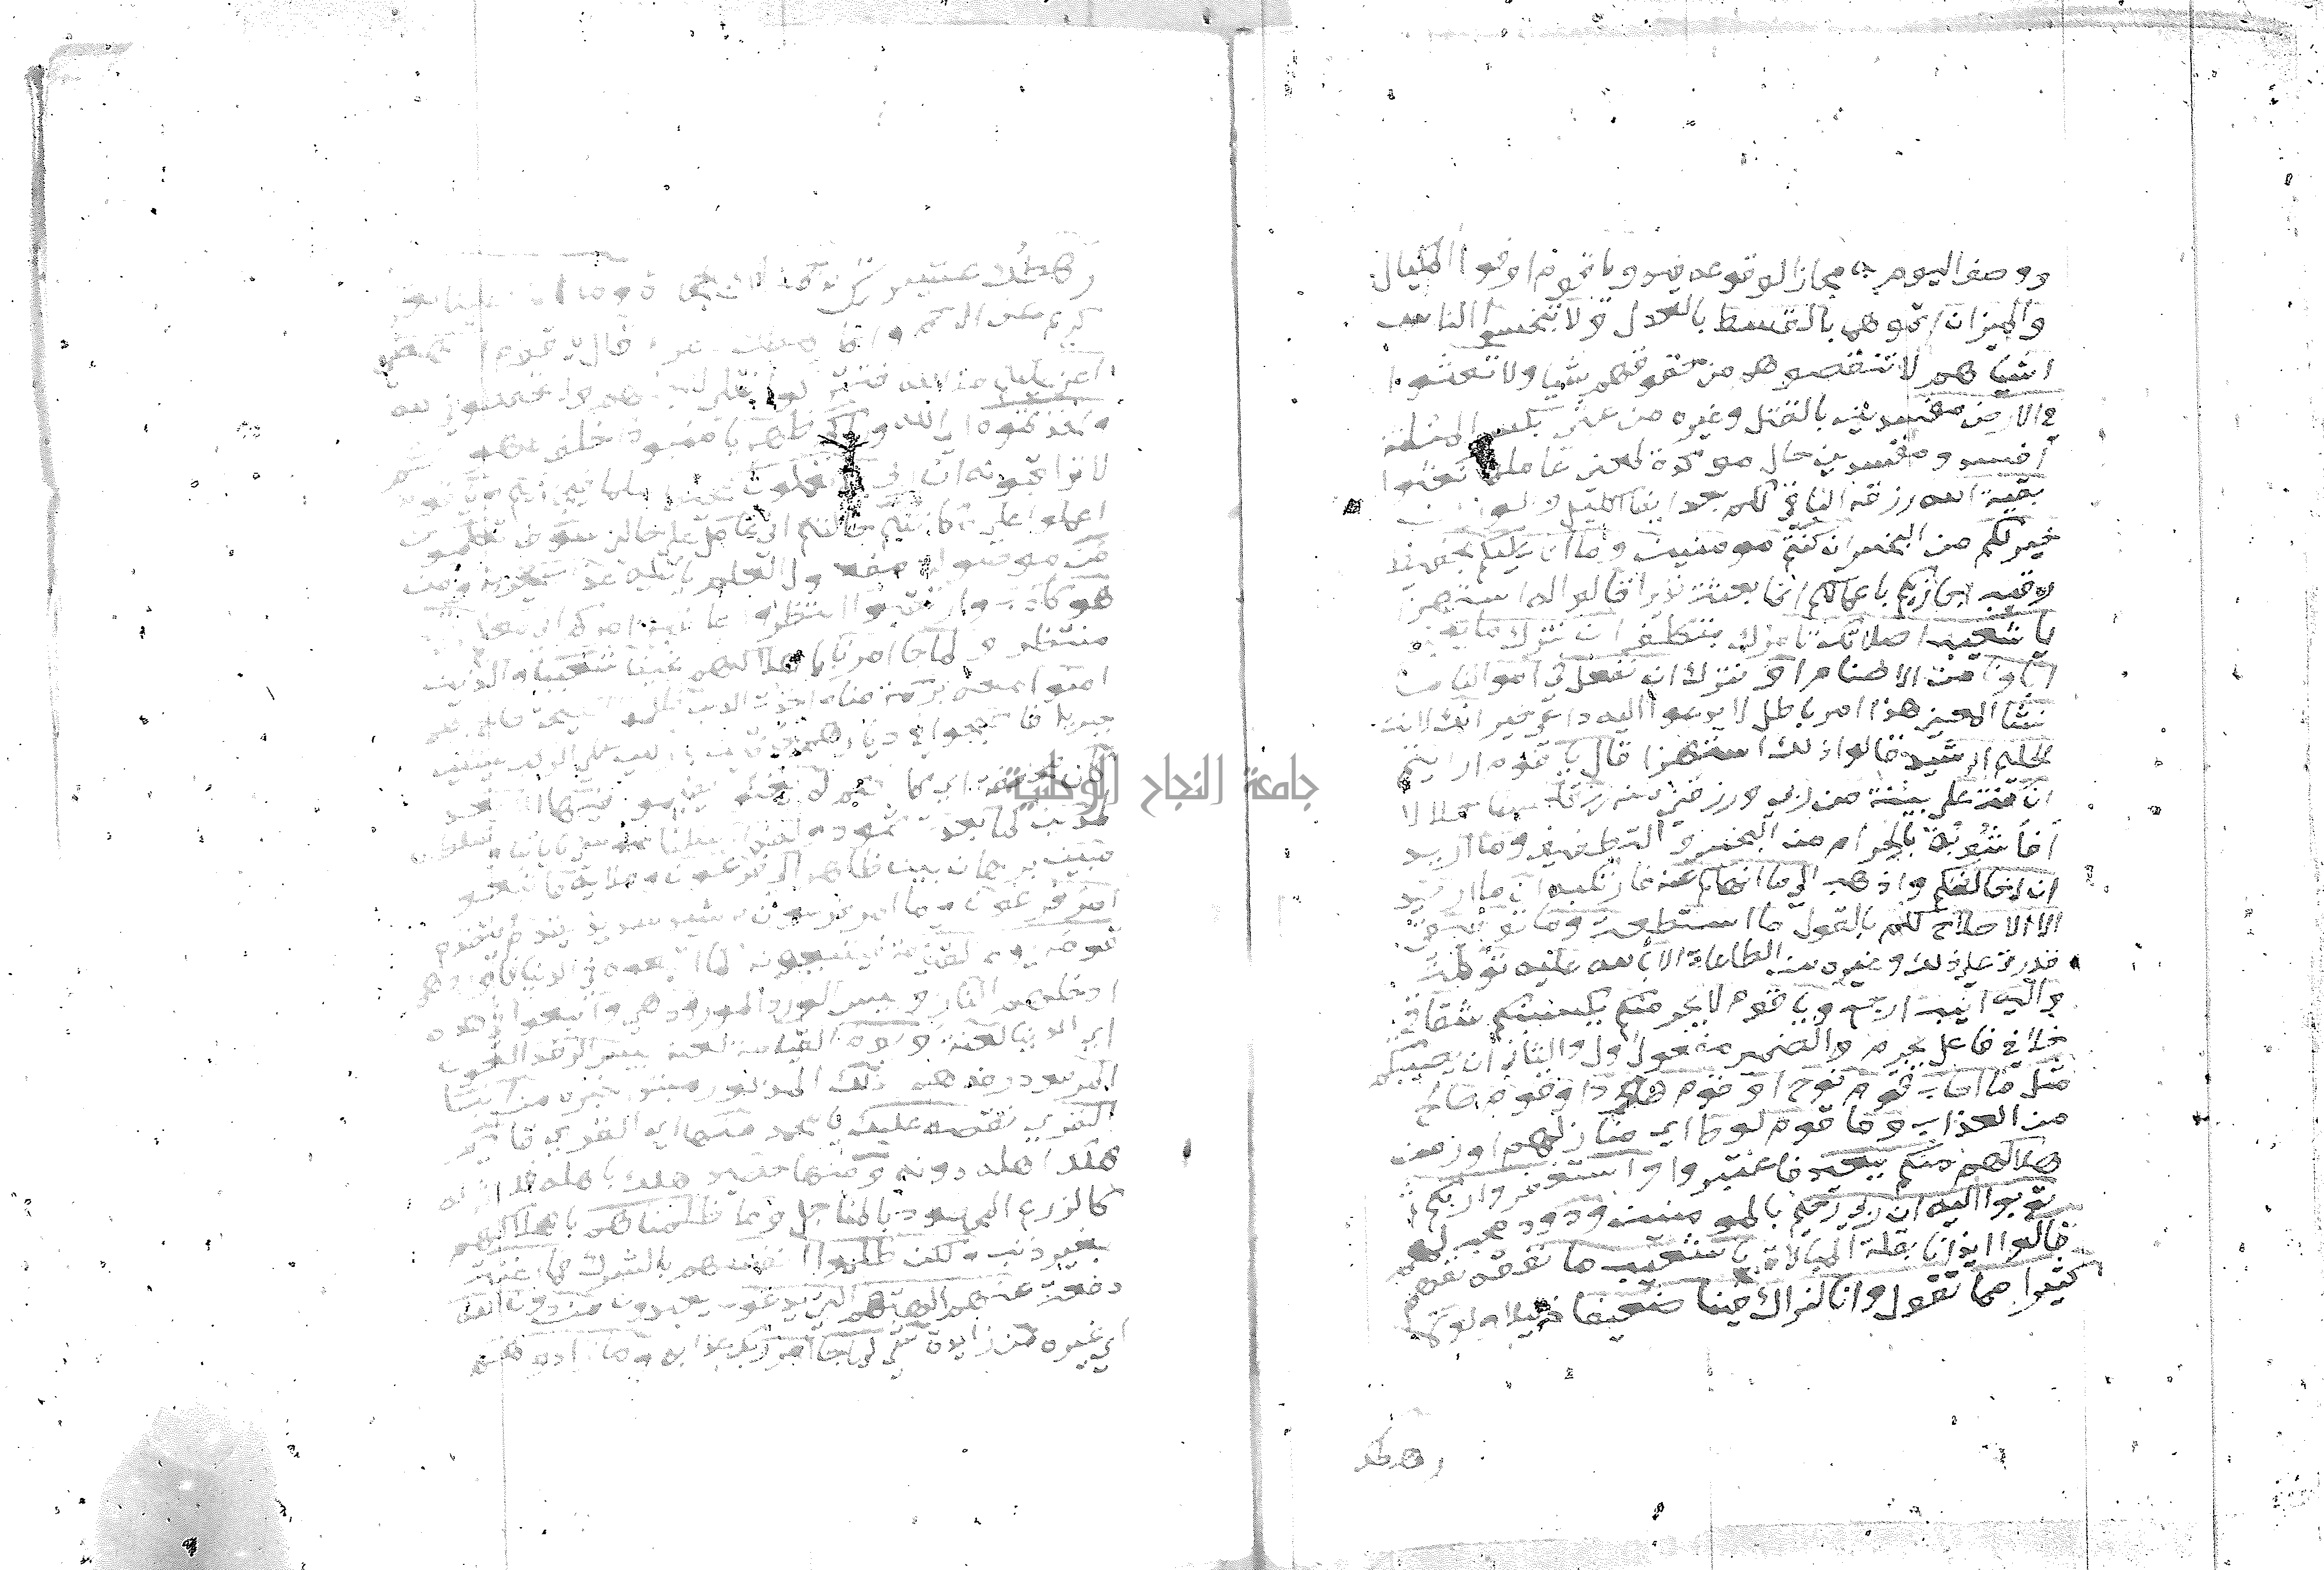 ووصف اليوم به مجاز لوقوعه فيه ويا قوم اوفوا المكيال
والميزان اتموهما بالقسط بالعدل ولا تبخسوا الناس
اشياهم لا تنقصوهم من حقوقهم شيا ولا تعثوا
في الارض مفسدين بالقتل وغيره من عثي بكسر المثلثة
افسد ومفسدين حال موكدة لمعنى عاملها تعثوا
بقية الله رزقه الباقي لكم بعد ايفا الكيل والوزن
خير لكم من البخس ان كنتم مومنين وما انا عليكم بحفيظ
رقيب اجازيكم باعمالكم انما بعثت نذيرا قالوا له استهزا
يا شعيب اصلاتك تامرك بتكليف ان نترك ما يعبد
اباونا من الاصنام او نترك ان نفعل في اموالنا ما
نشا المعنى هذا امر باطل لا يدعوا اليه داعي خير انك لانت
الحليم الرشيد قالوا ذلك استهزا قال يا قوم ارايتم
ان كنت على بينة من ربي ورزقني منه رزقا حسنا حلالا
افاشوبه بالحرام من البخس والتطفيف وما اريد
ان اخالفكم واذهب الى ما انهاكم عنه فارتكبه ان ما اريد
الا الاصلاح لكم بالقول ما استطعت وما توفيقي
قدرتي على ذلك وغيره من الطاعات الا بالله عليه توكلت
واليه انيب ارجع ويا قوم لا يجرمنكم يكسبنكم شقاقي
خلافي فاعل يجرم والضمير مفعول اول والثاني ان يصيبكم
مثل ما اصاب قوم نوح او قوم هود او قوم صالح
من العذاب وما قوم لوط اي منازلهم او زمن
هلاكهم منكم ببعيد فاعتبروا واستغفروا ربكم
توبوا اليه ان ربي رحيم بالمومنين ودود محب لهم
قالوا ايذانا بقلة المبالاة يا شعيب ما نفقه نفهم
كثيرا مما تقول وانا لنراك فينا ضعيفا ذليلا ولولا
رهطك
رهطك عشيرتك
كريم عن الرجم وانما رهطك هم قال يا قوم ارهطي
اعز عليكم من الله فتتركوا قتلي لاجلهم ولا تحفظوني لله
واتخذتموه اي الله وراكم ظهريا منبوذا خلف ظهوركم
لا تراقبونه ان ربي بما تعملون محيط علما فيجازيكم ويا قوم
اعملوا على مكانتكم حالتكم اني عامل على حالتي سوف تعلمون
من موصولة مفعول العلم ياتيه عذاب يخزيه ومن
هو كاذب وارتقبوا انتظروا عاقبة امركم اني معكم رقيب
منتظر ولما جا امرنا باهلاكهم نجينا شعيبا والذين
امنوا معه برحمة منا واخذت الذين ظلموا الصيحة صاح بهم
جبريل فاصبحوا في ديارهم جاثمين باركين على الركب ميتين
كان مخففة اي كانهم لم يغنوا يقيموا فيها الا بعدا
لمدين كما بعدت ثمود ولقد ارسلنا موسى باياتنا وسلطان
مبين برهان بين ظاهر الى فرعون وملايه فاتبعوا
امر فرعون وما امر فرعون برشيد سديد يقدم يتقدم
قومه يوم القيامة فيتبعونه كما اتبعوه في الدنيا فاوردهم
ادخلهم النار وبيس الورد المورود هي واتبعوا في هذه
اي الدنيا لعنة ويوم القيامة لعنة بيس الرفد العون
المرفود رفدهم ذلك المذكور مبتدا خبره من انبا
القرى نقصه عليك يا محمد منها اي القرى قايم
هلك اهله دونه ومنها حصيد هلك باهله فلا اثر له
كالزرع المحصود بالمناجل وما ظلمناهم باهلاكهم
بغير ذنب ولكن ظلموا انفسهم بالشرك فما اغنت
دفعت عنهم الهتهم التي يدعون يعبدون من دون الله
اي غيره من زايدة شي لما جا امر ربك عذابه وما زادوهم
جامعة النجاح الوطنية